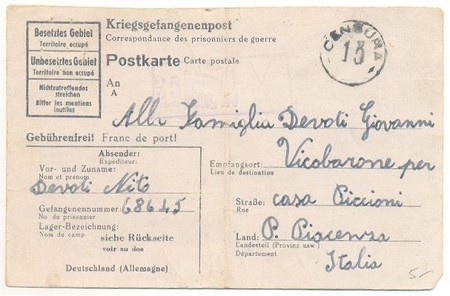 Besetztes Gebiet
Territoire occupé
Unbesetztes Gebiet
Territoire non occupé
Nichtzutreffendes
streichen
Biffer les mentions
inutiles
Kriegsgefangenenpost
Correspondance des prisonniers de guerre
Postkarte Carte postale
CENSURA
15
An
A
Alla Famiglia Devoti Giovanni
Gebührenfrei! Franc de port!
Absender:
Expéditeur:
Vor- und Zuname:
Nom et prénom
Devoti Nito
Gefangenennummer: 68645
No du prisonnier
Lager-Bezeichnung:
Nom du camp
siehe Rückseite
voir au dos
Deutschland (Allemagne)
Empfangsort: Vicobarone per
Lieu de destination
Straße: casa Piccioni
Rue
Land: P. Piacenza
Landesteil (Provinz usw.)
Département
Italia
5-